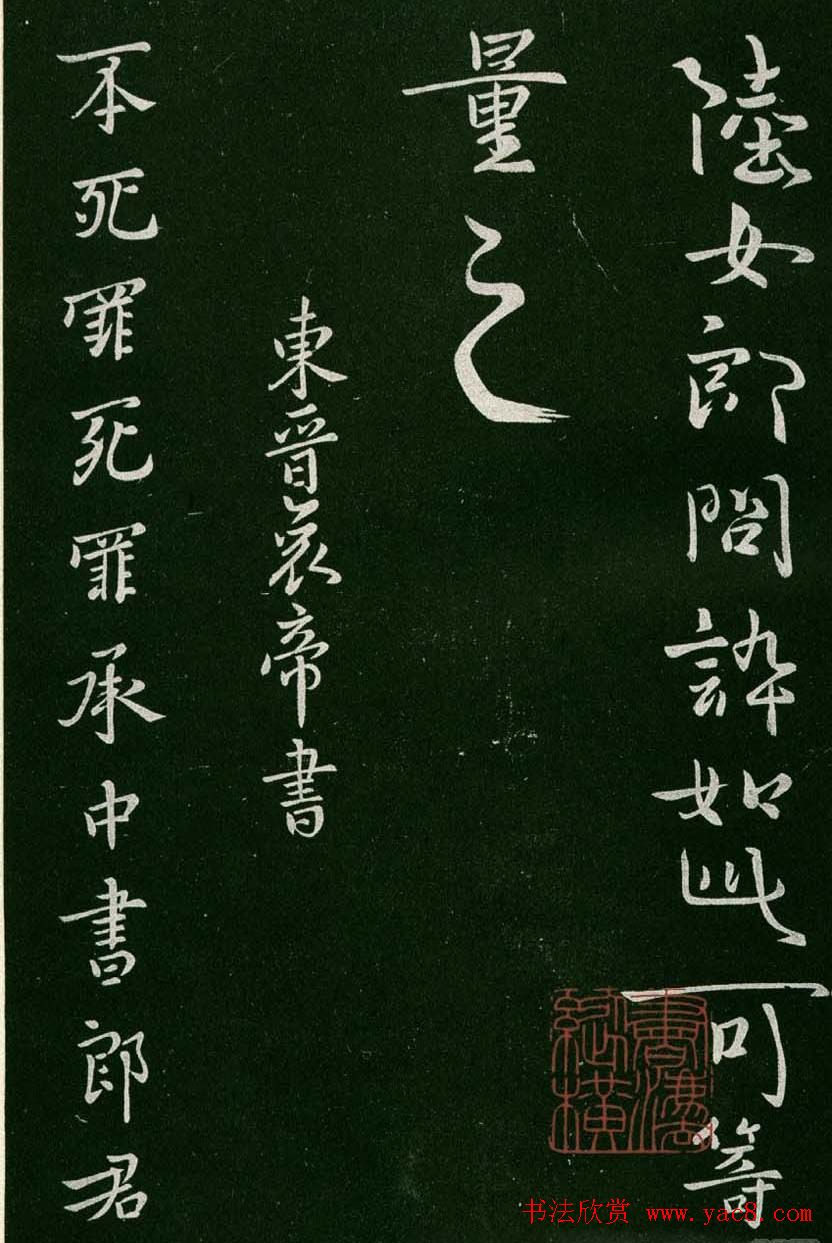 陸女郎問誶如此可籌
量之
東晉哀帝書
丕死罪死罪承中書郎君
書灋縱橫
书法欣赏 www.yac8.com